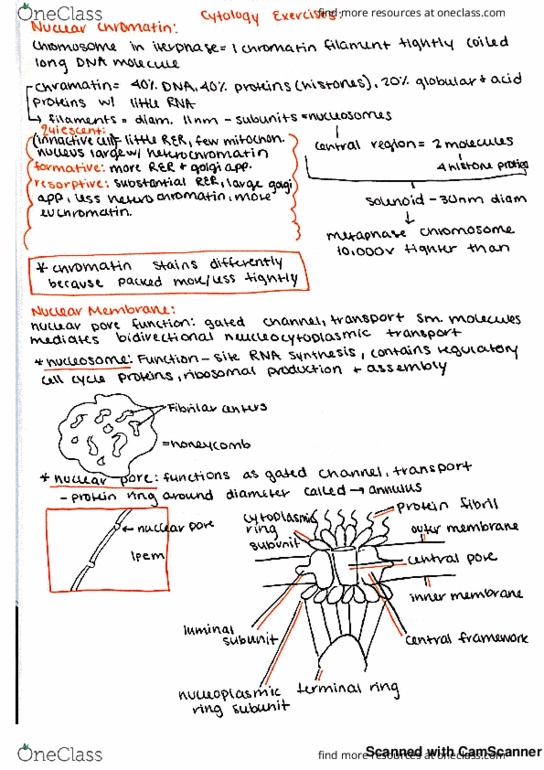 OneClass
find more resources at oneclass.com
Cytology Exercises:
Nuclear Chromatin:
Chromosome in iterphase = 1 chromatin filament tightly coiled
long DNA molecule
chramatin = 40% DNA, 40% proteins (histones), 20% globular + acid
proteins w/ little RNA
↳ filaments = diam. 11nm - subunits = nucleosomes
quiescent:
(innactive cell) - little RER, few mitochon.
nucleus large w/ heterochromatin
formative: more RER + golgi app.
resorptive: substantial RER, large golgi
app, less hetero chromatin, more
euchromatin.
central region = 2 molecules
4 histone proteins
solenoid - 30nm diam
metaphase chromosome
10,000x tighter than
* chromatin stains differently
because packed more/less tightly
Nuclear Membrane:
nuclear pore function: gated channel, transport sm. molecules
mediates bidirectional nucleocytoplasmic transport
* nucleosome: Function - site RNA synthesis, contains regulatory
cell cycle proteins, ribosomal production + assembly
Fibrilar centers
= honeycomb
* nuclear pore: functions as gated channel, transport
- protein ring around diameter called → annulus
nuclear pore
1pem
cytoplasmic
ring
subunit
protein fibril
outer membrane
central pore
inner membrane
central framework
luminal
subunit
nucleoplasmic
ring subunit
terminal ring
Scanned with CamScanner
OneClass
find more resources at oneclass.com